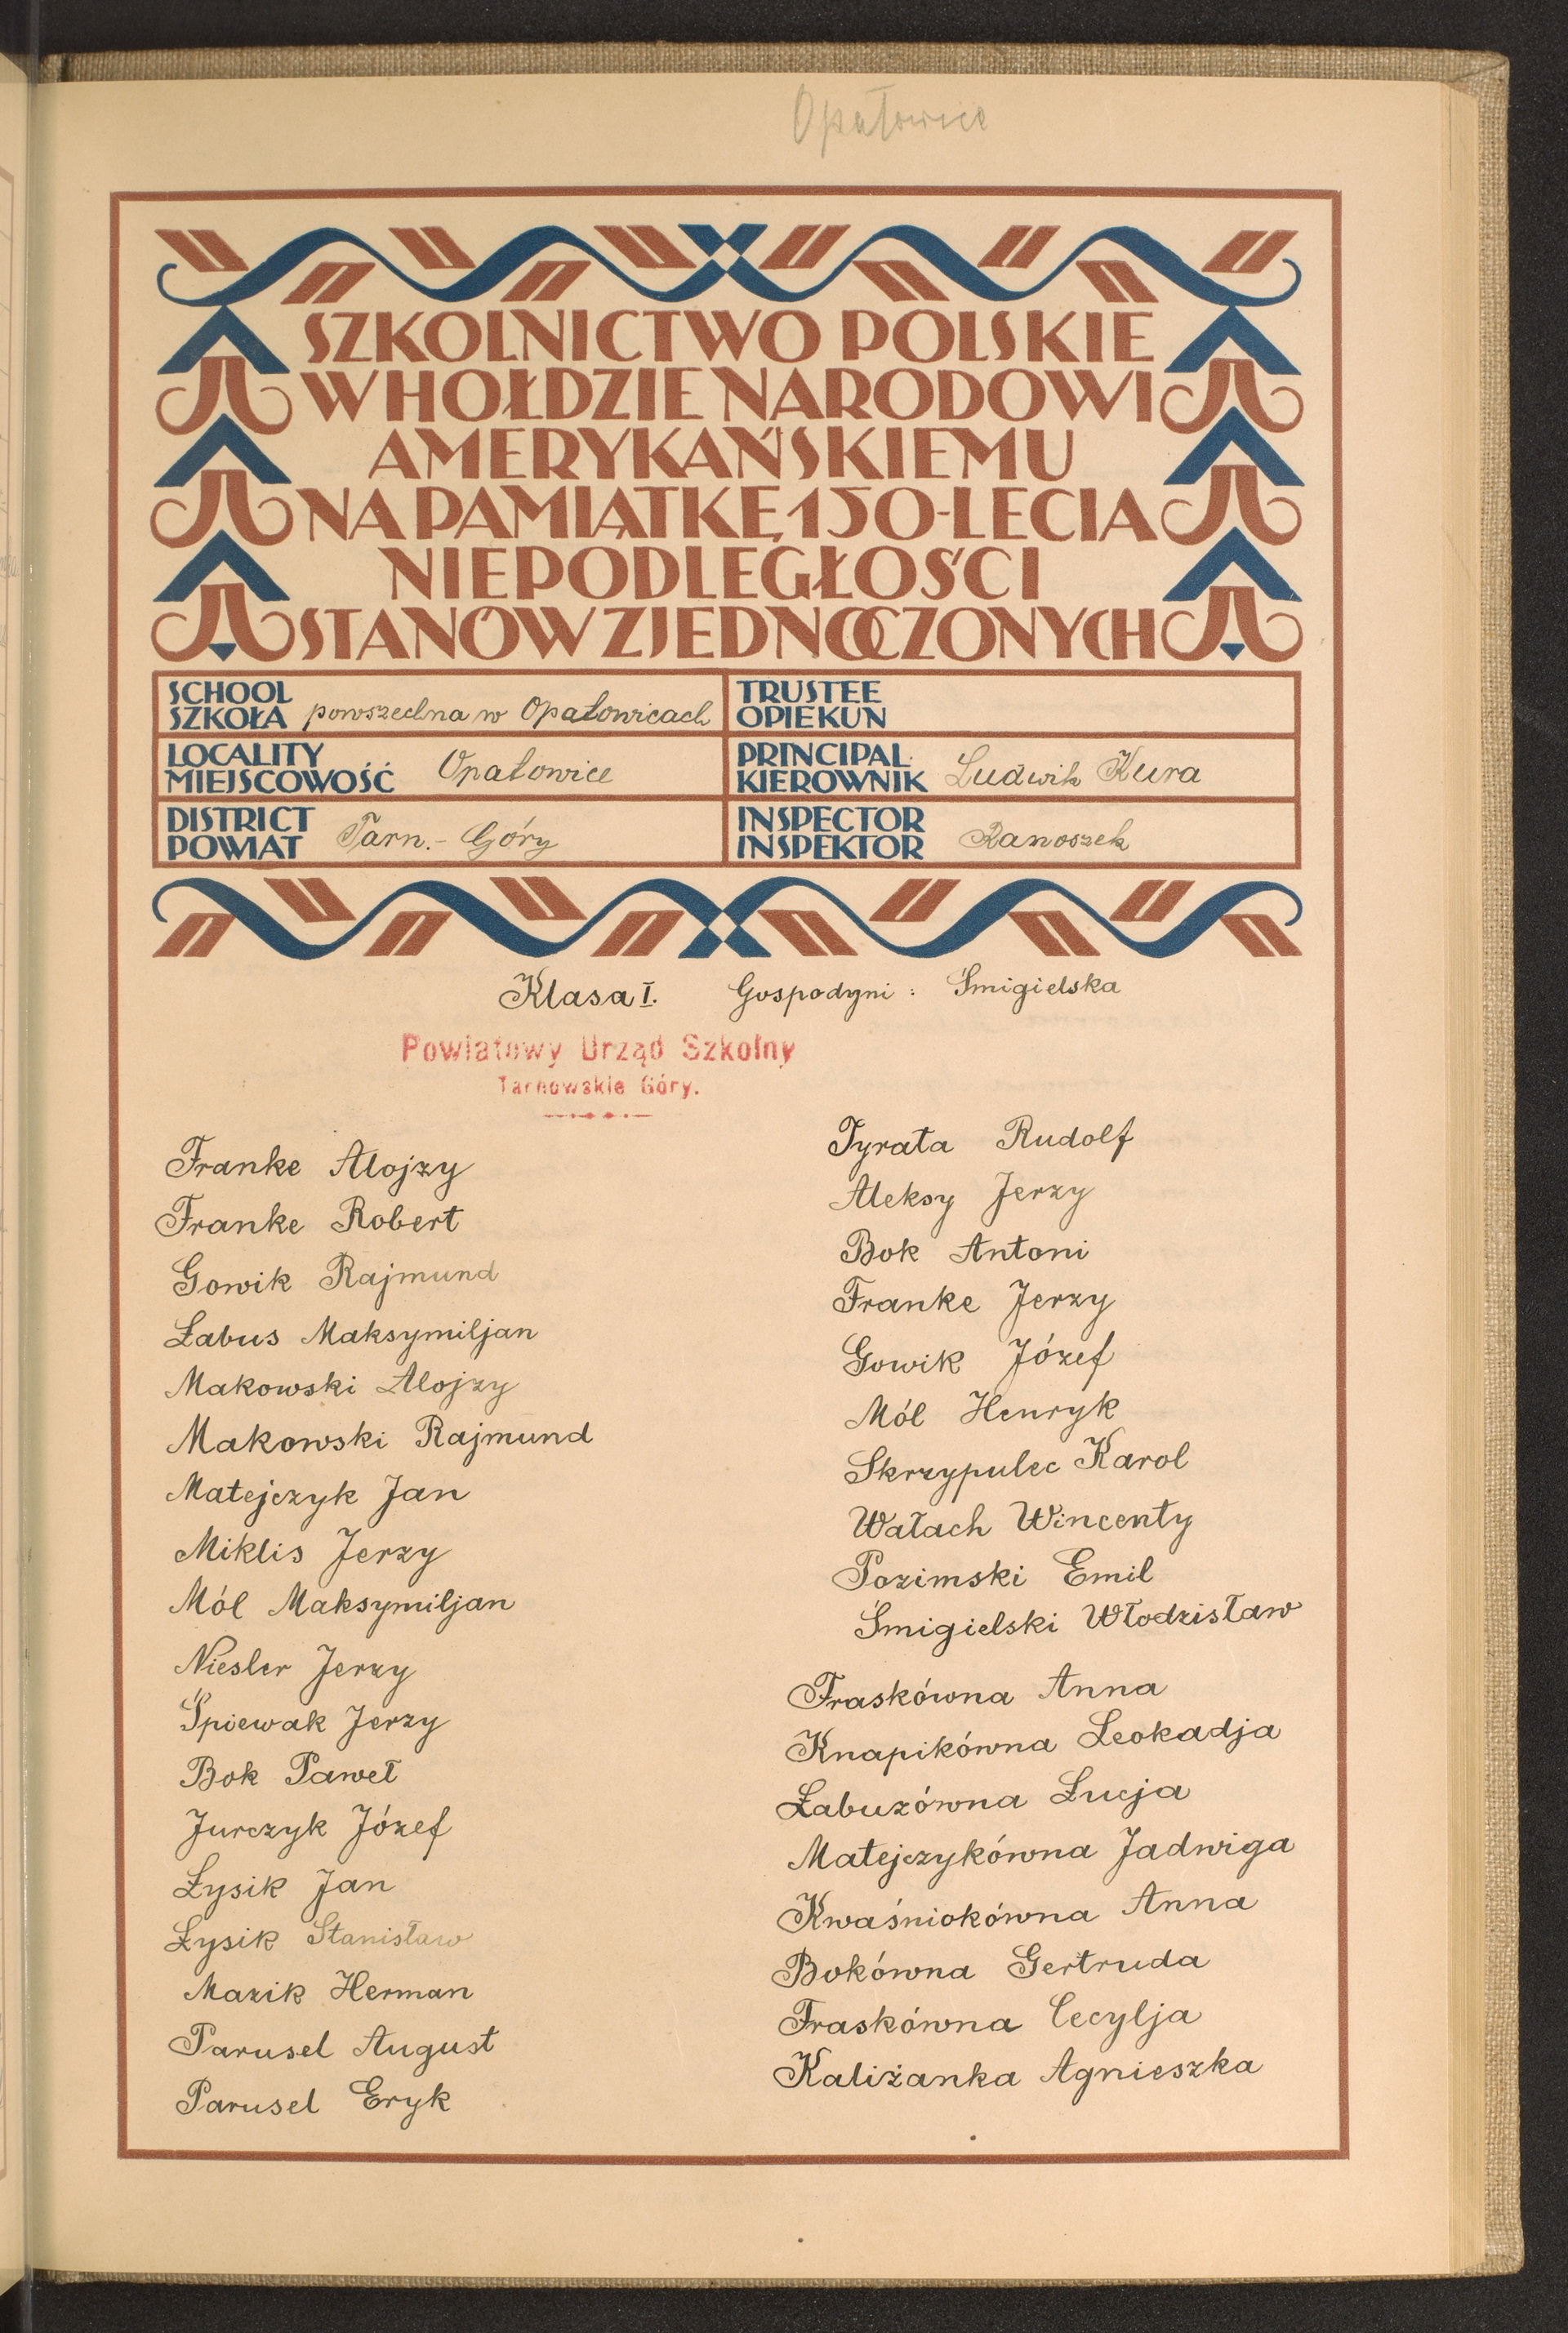 Opatowice
SZKOLNICTWO POLSKIE
W HOŁDZIE NARODOWI
AMERYKAŃSKIEMU
NA PAMIĄTKĘ 150-LECIA
NIEPODLEGŁOŚCI
STANÓW ZJEDNOCZONYCH
SCHOOL
SZKOŁA powszechna w Opatowicach
TRUSTEE
OPIEKUN
LOCALITY
MIEJSCOWOŚĆ Opatowice
PRINCIPAL
KIEROWNIK Ludwik Kura
DISTRICT
POWIAT Tarn.- Góry
INSPECTOR
INSPEKTOR Ranoszek
Klasa I. Gospodyni : Śmigielska
Powiatowy Urząd Szkolny
Tarnowskie Góry.
Franke Alojzy
Franke Robert
Gowik Rajmund
Łabus Maksymiljan
Makowski Alojzy
Makowski Rajmund
Matejczyk Jan
Miklis Jerzy
Mól Maksymiljan
Niesler Jerzy
Śpiewak Jerzy
Bok Paweł
Jurczyk Józef
Łysik Jan
Łysik Stanisław
Mazik Herman
Parusel August
Parusel Eryk
Tyrata Rudolf
Aleksy Jerzy
Bok Antoni
Franke Jerzy
Gowik Józef
Mól Henryk
Skrzypulec Karol
Wałach Wincenty
Pozimski Emil
Śmigielski Włodzisław
Fraskówna Anna
Knapikówna Leokadja
Łabuzówna Łucja
Matejczykówna Jadwiga
Kwaśniokówna Anna
Bokówna Gertruda
Fraskówna Cecylja
Kaliżanka Agnieszka